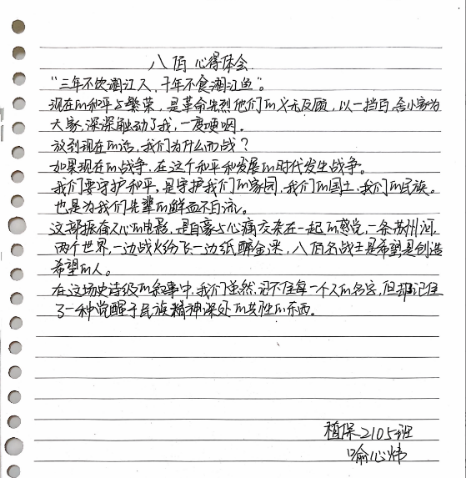 八佰 心得体会
“三年不饮湘江水，十年不食湘江鱼”。
现在的和平与繁荣，是革命先烈他们的义无反顾，以一挡百，舍小家为
大家，深深触动了我，一度哽咽。
放到现在的话，我们为什么而战？
如果现在的战争，在这个和平和发展的时代发生战争。
我们要守护和平，是守护我们的家园，我们的国土，我们的民族。
也是为我们先辈的鲜血不白流。
这部振奋人心的电影，是自豪与心痛交杂在一起的感觉，一条苏州河，
两个世界，一边战火纷飞，一边纸醉金迷，八佰名战士是希望是创造
希望的人。
在这场史诗级的叙事中，我们虽然记不住每一个人的名字，但都记住
了一种觉醒于民族精神深处的共性的东西。
植保2105班
喻心炜